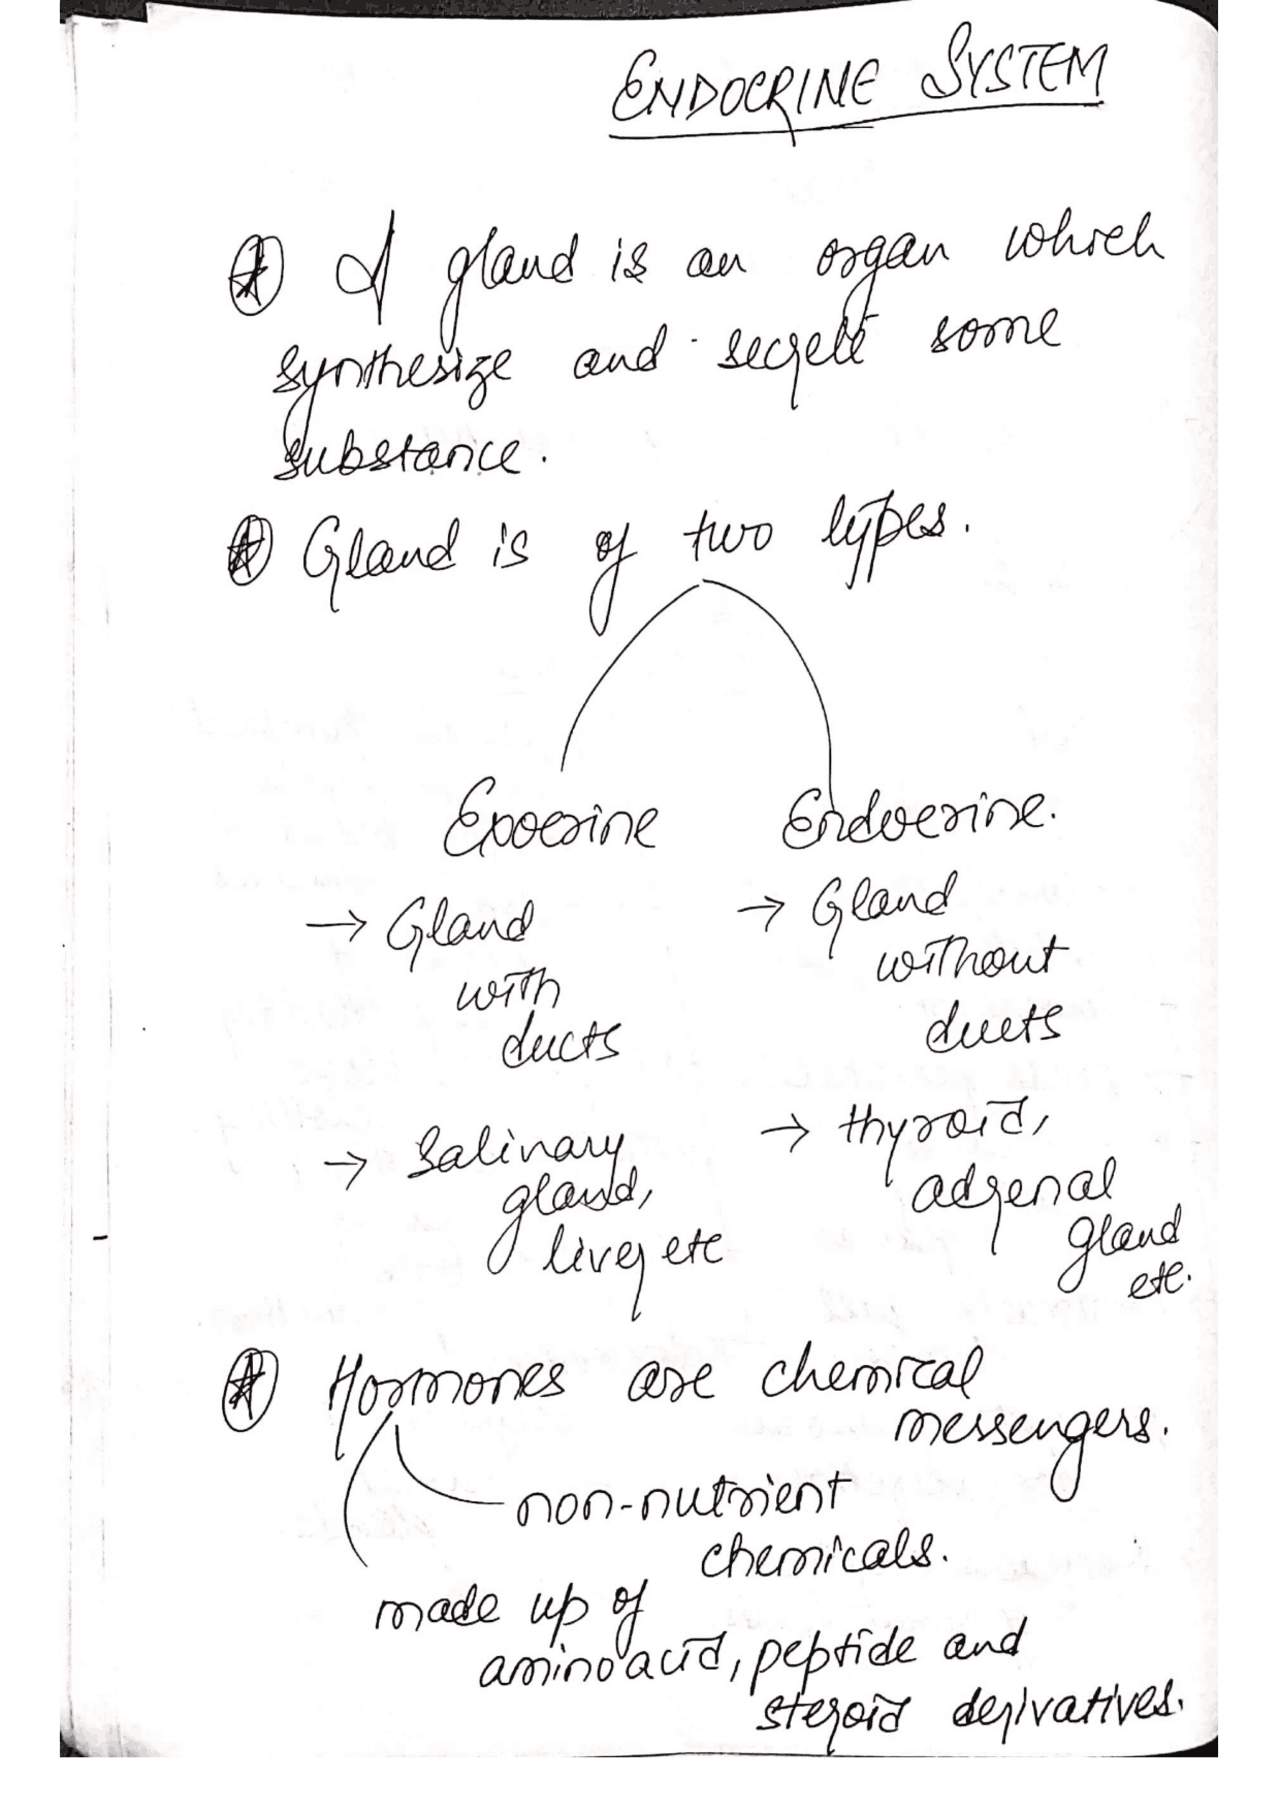 ENDOCRINE SYSTEM
A gland is an organ which
synthesize and secrete some
substance.
Gland is of two types.
Exocrine Endocrine.
→ Gland
with
ducts
→ Gland
without
ducts
→ Salivary
gland,
liver etc
→ thyroid,
adrenal
gland
etc.
Hormones are chemical
messengers.
non-nutrient
chemicals.
made up of
amino acid, peptide and
steroid derivatives.